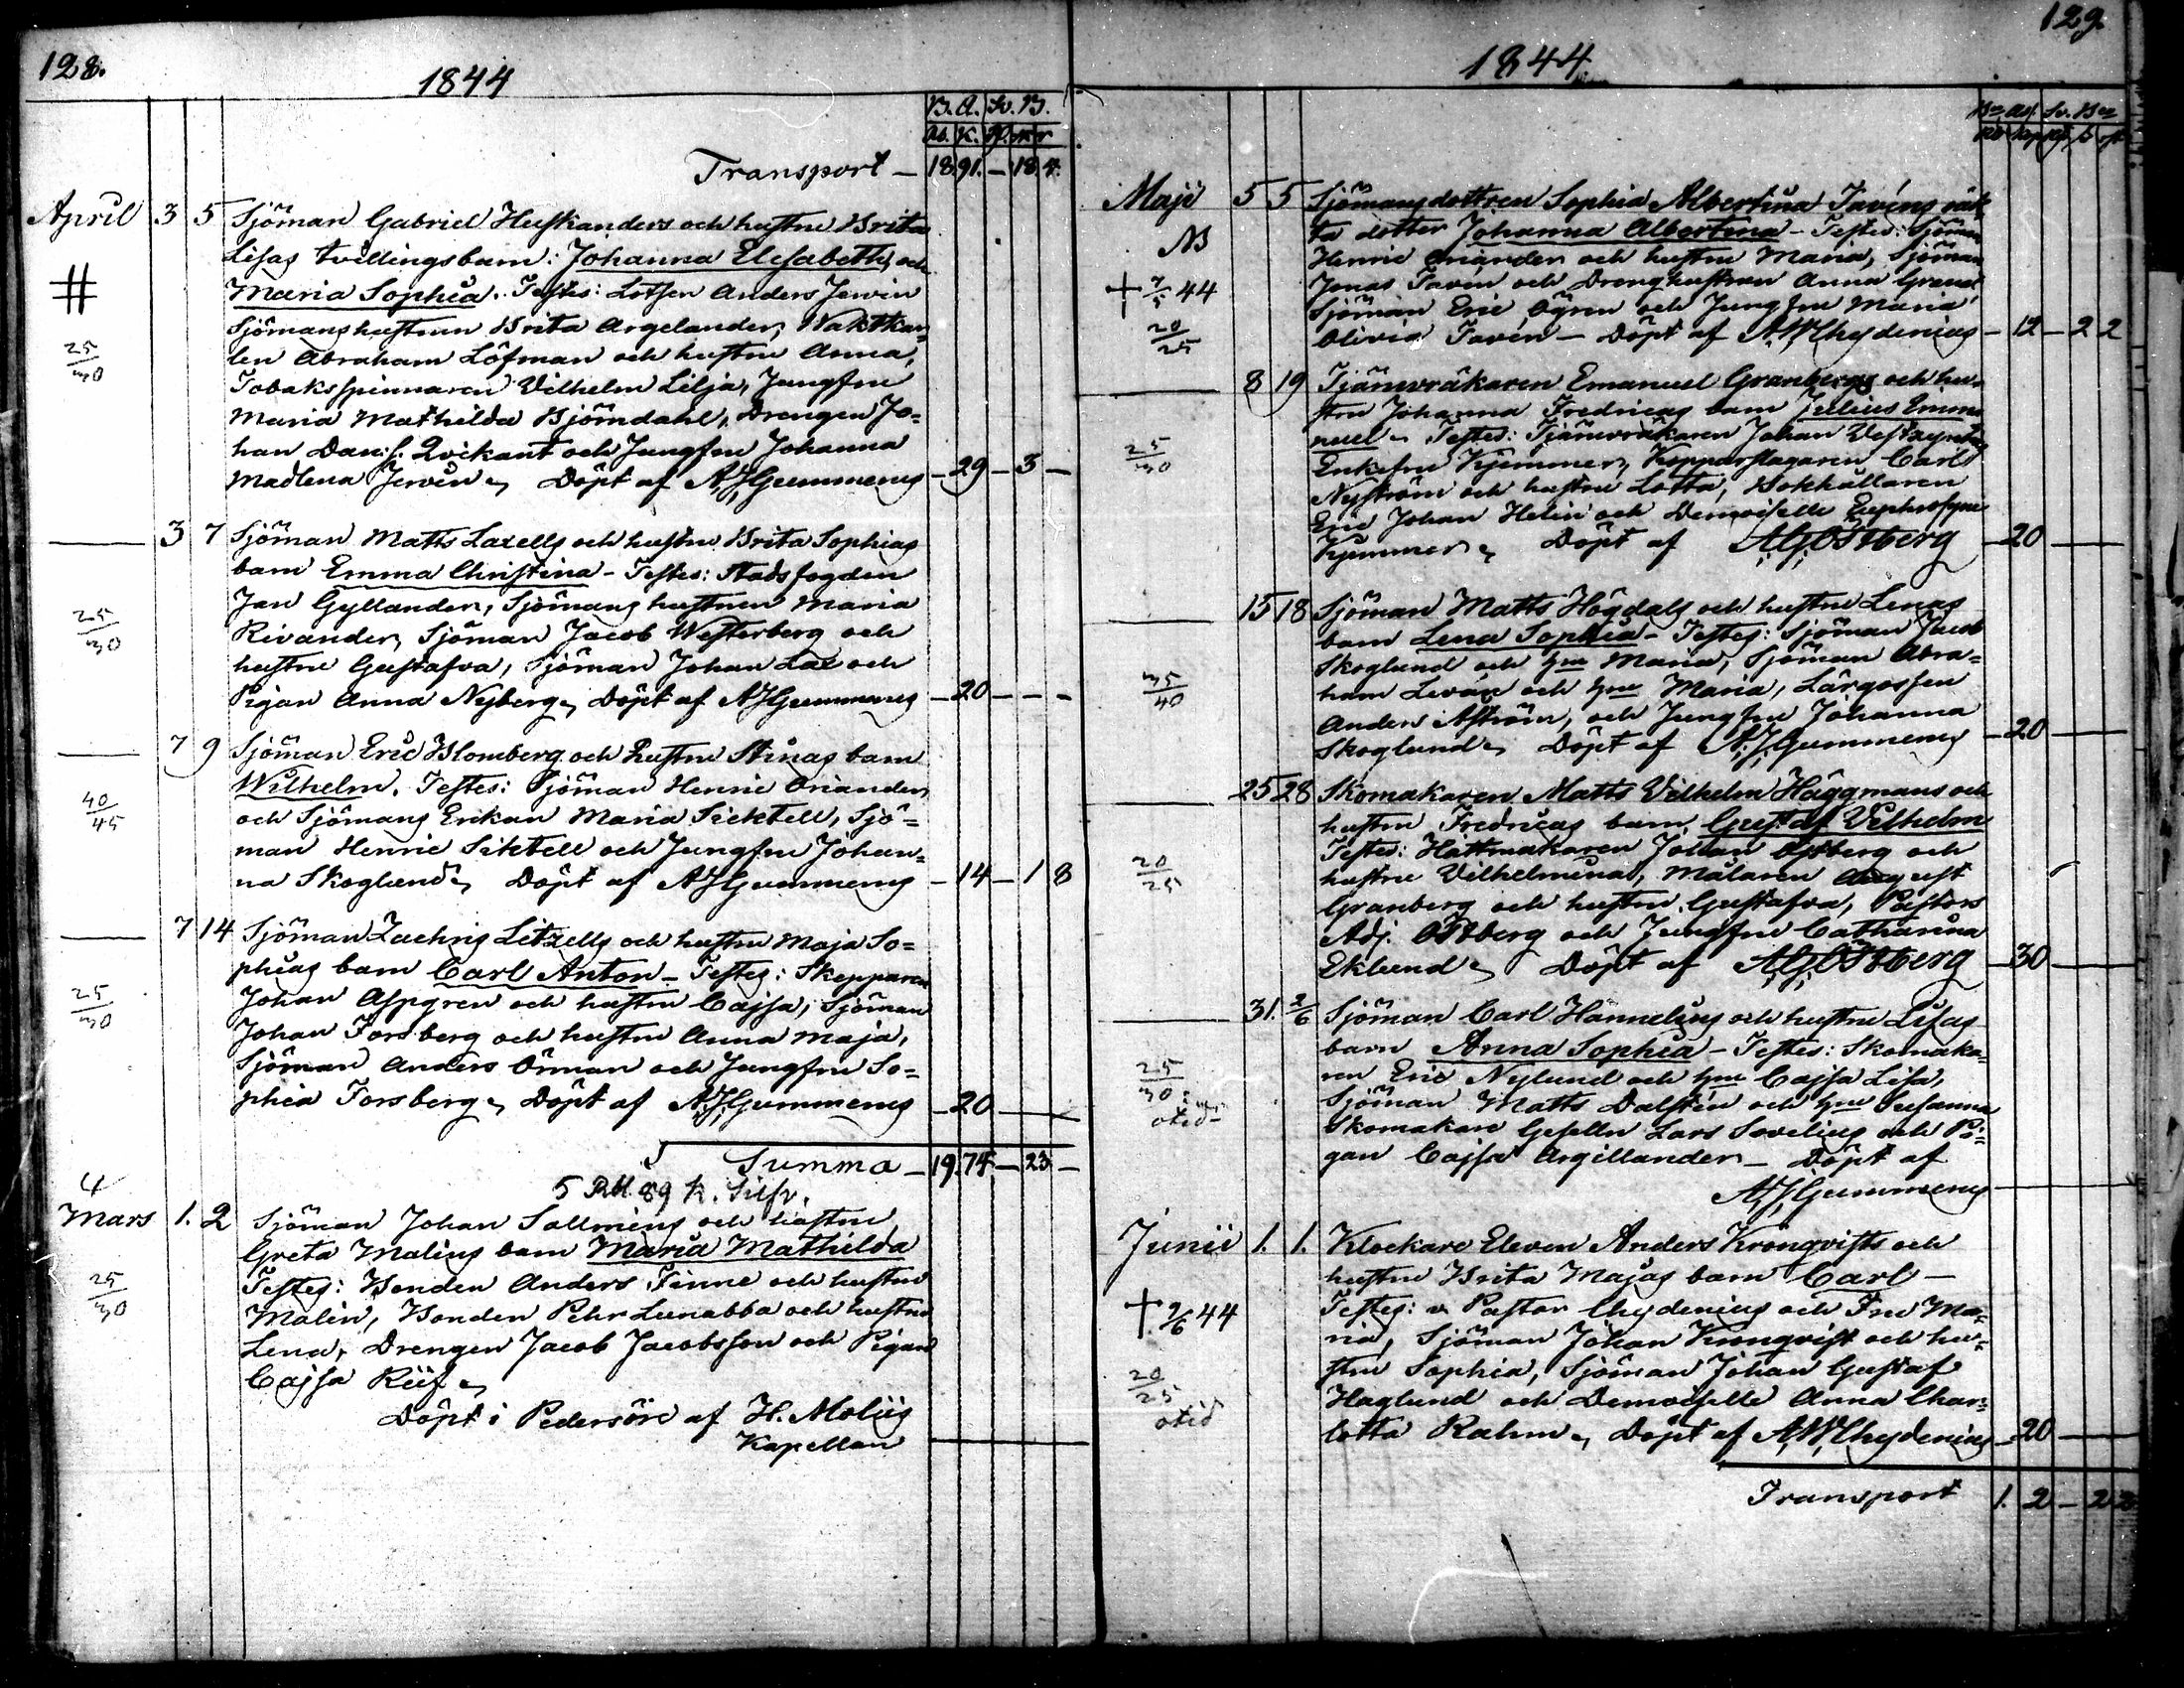 128.
1844
B. A. Sv. B.
Transport — 18 91. — 18 4.
April 3 5 Sjöman Gabriel Huskanders och hustru Brita
Lisas tvillingsbarn: Johanna Elisabeth, och
Maria Sophia. Testes: Lotsen Anders Jervin
25/30
Sjömanshustrun Brita Argelander, Waktkar=
len Abraham Löfman och hustru Anna,
Tobaksspinnaren Vilhelm Lilja, Jungfru
Maria Mathilda Björndahl, Drengen Jo=
han Dan:s. Qvikant och Jungfru Johanna
Madlena Jervin, Döpt af AJGummerus — 29 — 3 —
3 7 Sjöman Matts Laxells och hustru Brita Sophias
barn Emma Christina - Testes: Stadsfogden
25/30
Jan Gyllander, Sjömans hustrun Maria
Rivander, Sjöman Jacob Westerberg och
hustru Gustafva, Sjöman Johan Lax och
Pigan Anna Nyberg, Döpt af AJGummerus — 20 — — —
7 9 Sjöman Eric Blomberg och hustru Stinas barn
Wilhelm. Testes: Sjöman Henric Oriander,
40/45
och Sjömans Enkan Maria Sicktell, Sjö=
man Henric Siktell och Jungfru Johan=
na Skoglund, Döpt af AJGummerus — 14 — 1 8
7 14 Sjöman Zachris Litzells och hustru Maja So=
phias barn Carl Anton — Testes: Skepparen
25/30
Johan Aspgren och hustru Cajsa, Sjöman
Johan Forsberg och hustru Anna Maja,
Sjöman Anders Önnan och Jungfru So=
phia Forsberg, Döpt af AJGummerus — 20 —
Summa — 19. 74. — 23 —
5 Rbl. 89 k. Silfv.
4
Mars 1. 2 Sjöman Johan Sallmens och hustru
Greta Malins barn Maria Mathilda
25/30
Testes: Bonden Anders Finne och hustru
Malin, Bonden Pehr Lunabba och hustru
Lena, Drengen Jacob Jacobsson och Pigan
Cajsa Riif
Döpt i Pedersöre af H. Moliis
Kapellan
129.
1844
Maji 5 5 Sjömansdottren Sophia Albertina Tavéns oäk=
ta dotter Johanna Albertina — Testes: Sjöman
Henric Oriander och hustru Maria, Sjöman
+ 7/5 44
Jonas Tavén och Drenghustrun Anna
Sjöman Eric Ögren och Jungfru Maria
20/25
Olivia Tavén — Döpt af A.W.Chydenius — 12 — 2 2
8 19 Tjäruvräkaren Emanuel Granbergs och hu=
stru Johanna Fredricas barn Julius Emma
nuel — Testes: Tjäruvräkaren Johan
25/30
Enkefru Kjemmer, Kopparslagaren Carl
Nyström och hustru Lotta, Bokhållaren
Eric Johan Helin och Demoiselle Euphrosyne
Kjemmer, Döpt af AGÖstberg — 20 —
15 18 Sjöman Matts Högdals och hustru Lenas
barn Lena Sophia — Testes: Sjöman Jacob
Skoglund och hru Maria, Sjöman Abra=
35/40
ham Levän och hru Maria, Lärgossen
Anders Åström, och Jungfru Johanna
Skoglund, Döpt af A.J.Gummerus — 20 —
25 28 Skomakaren Matts Vilhelm Häggmans och
hustru Fredricas barn Gustaf Vilhelm
20/25
Testes: Hattmakaren Johan Östberg och
hustru Vilhelmina, Målaren August
Granberg och hustru Gustafva, Pastors
Adj. Östberg och Jungfru Catharina
Eklund, Döpt af AGÖstberg — 30 —
31. 2/6 Sjöman Carl Hannelius och hustru Lisas
barn Anna Sophia — Testes: Skomaka=
25/30
otid
ren Eric Nylund och hru Cajsa Lisa,
Sjöman Matts Dalsten och hru Susanna
Skomakare Gesellen Lars Savelius och Pi=
gan Cajsa Argillander — Döpt af
AJGummerus
Junii 1. 1. Klockare Eleven Anders Kronqvists och
hustru Brita Majas barn Carl —
+ 9/6 44
Testes: v. Pastor Chydenius och Fru Ma=
ria, Sjöman Johan Kronqvist och hu=
stru Sophia, Sjöman Johan Gustaf
20/25
otid
Haglund och Demoiselle Anna Char=
lotta Rahm, Döpt af A.W.Chydenius — 20 —
Transport 1. 2 — 2 2